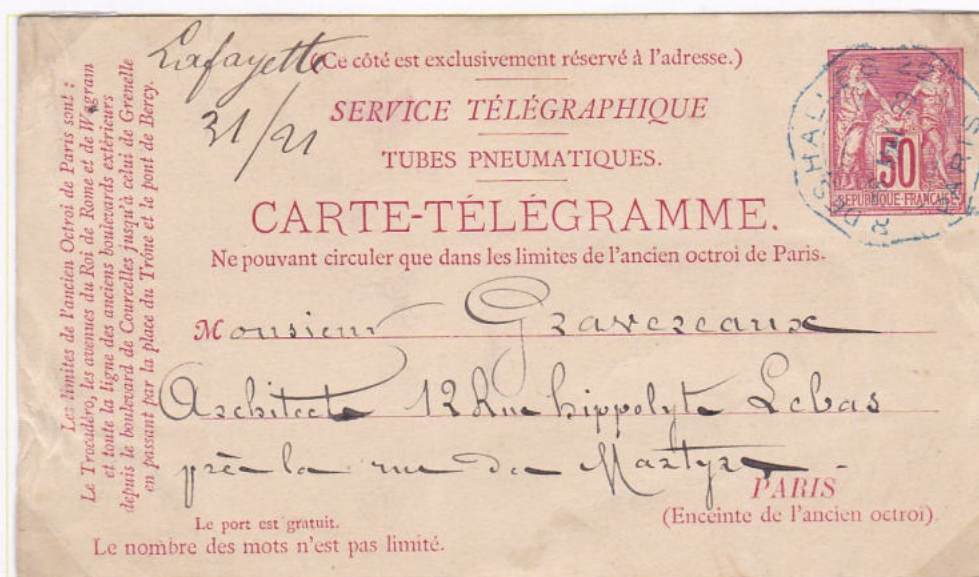 Lafayette
31/21
(Ce côté est exclusivement réservé à l'adresse.)
SERVICE TÉLÉGRAPHIQUE
TUBES PNEUMATIQUES.
CARTE-TÉLÉGRAMME.
Ne pouvant circuler que dans les limites de l'ancien octroi de Paris.
50
REPUBLIQUE FRANCAISE
PARIS
Les limites de l'ancien Octroi de Paris sont :
Le Trocadéro, les avenues du Roi de Rome et de Wagram
et toute la ligne des anciens boulevards extérieurs
depuis le boulevard de Courcelles jusqu'à celui de Grenelle
en passant par la place du Trône et le pont de Bercy.
Monsieur Gravereaux
Architecte 12 Rue hippolyte Lebas
près la rue de Martyrs
PARIS
(Enceinte de l'ancien octroi).
Le port est gratuit.
Le nombre des mots n'est pas limité.